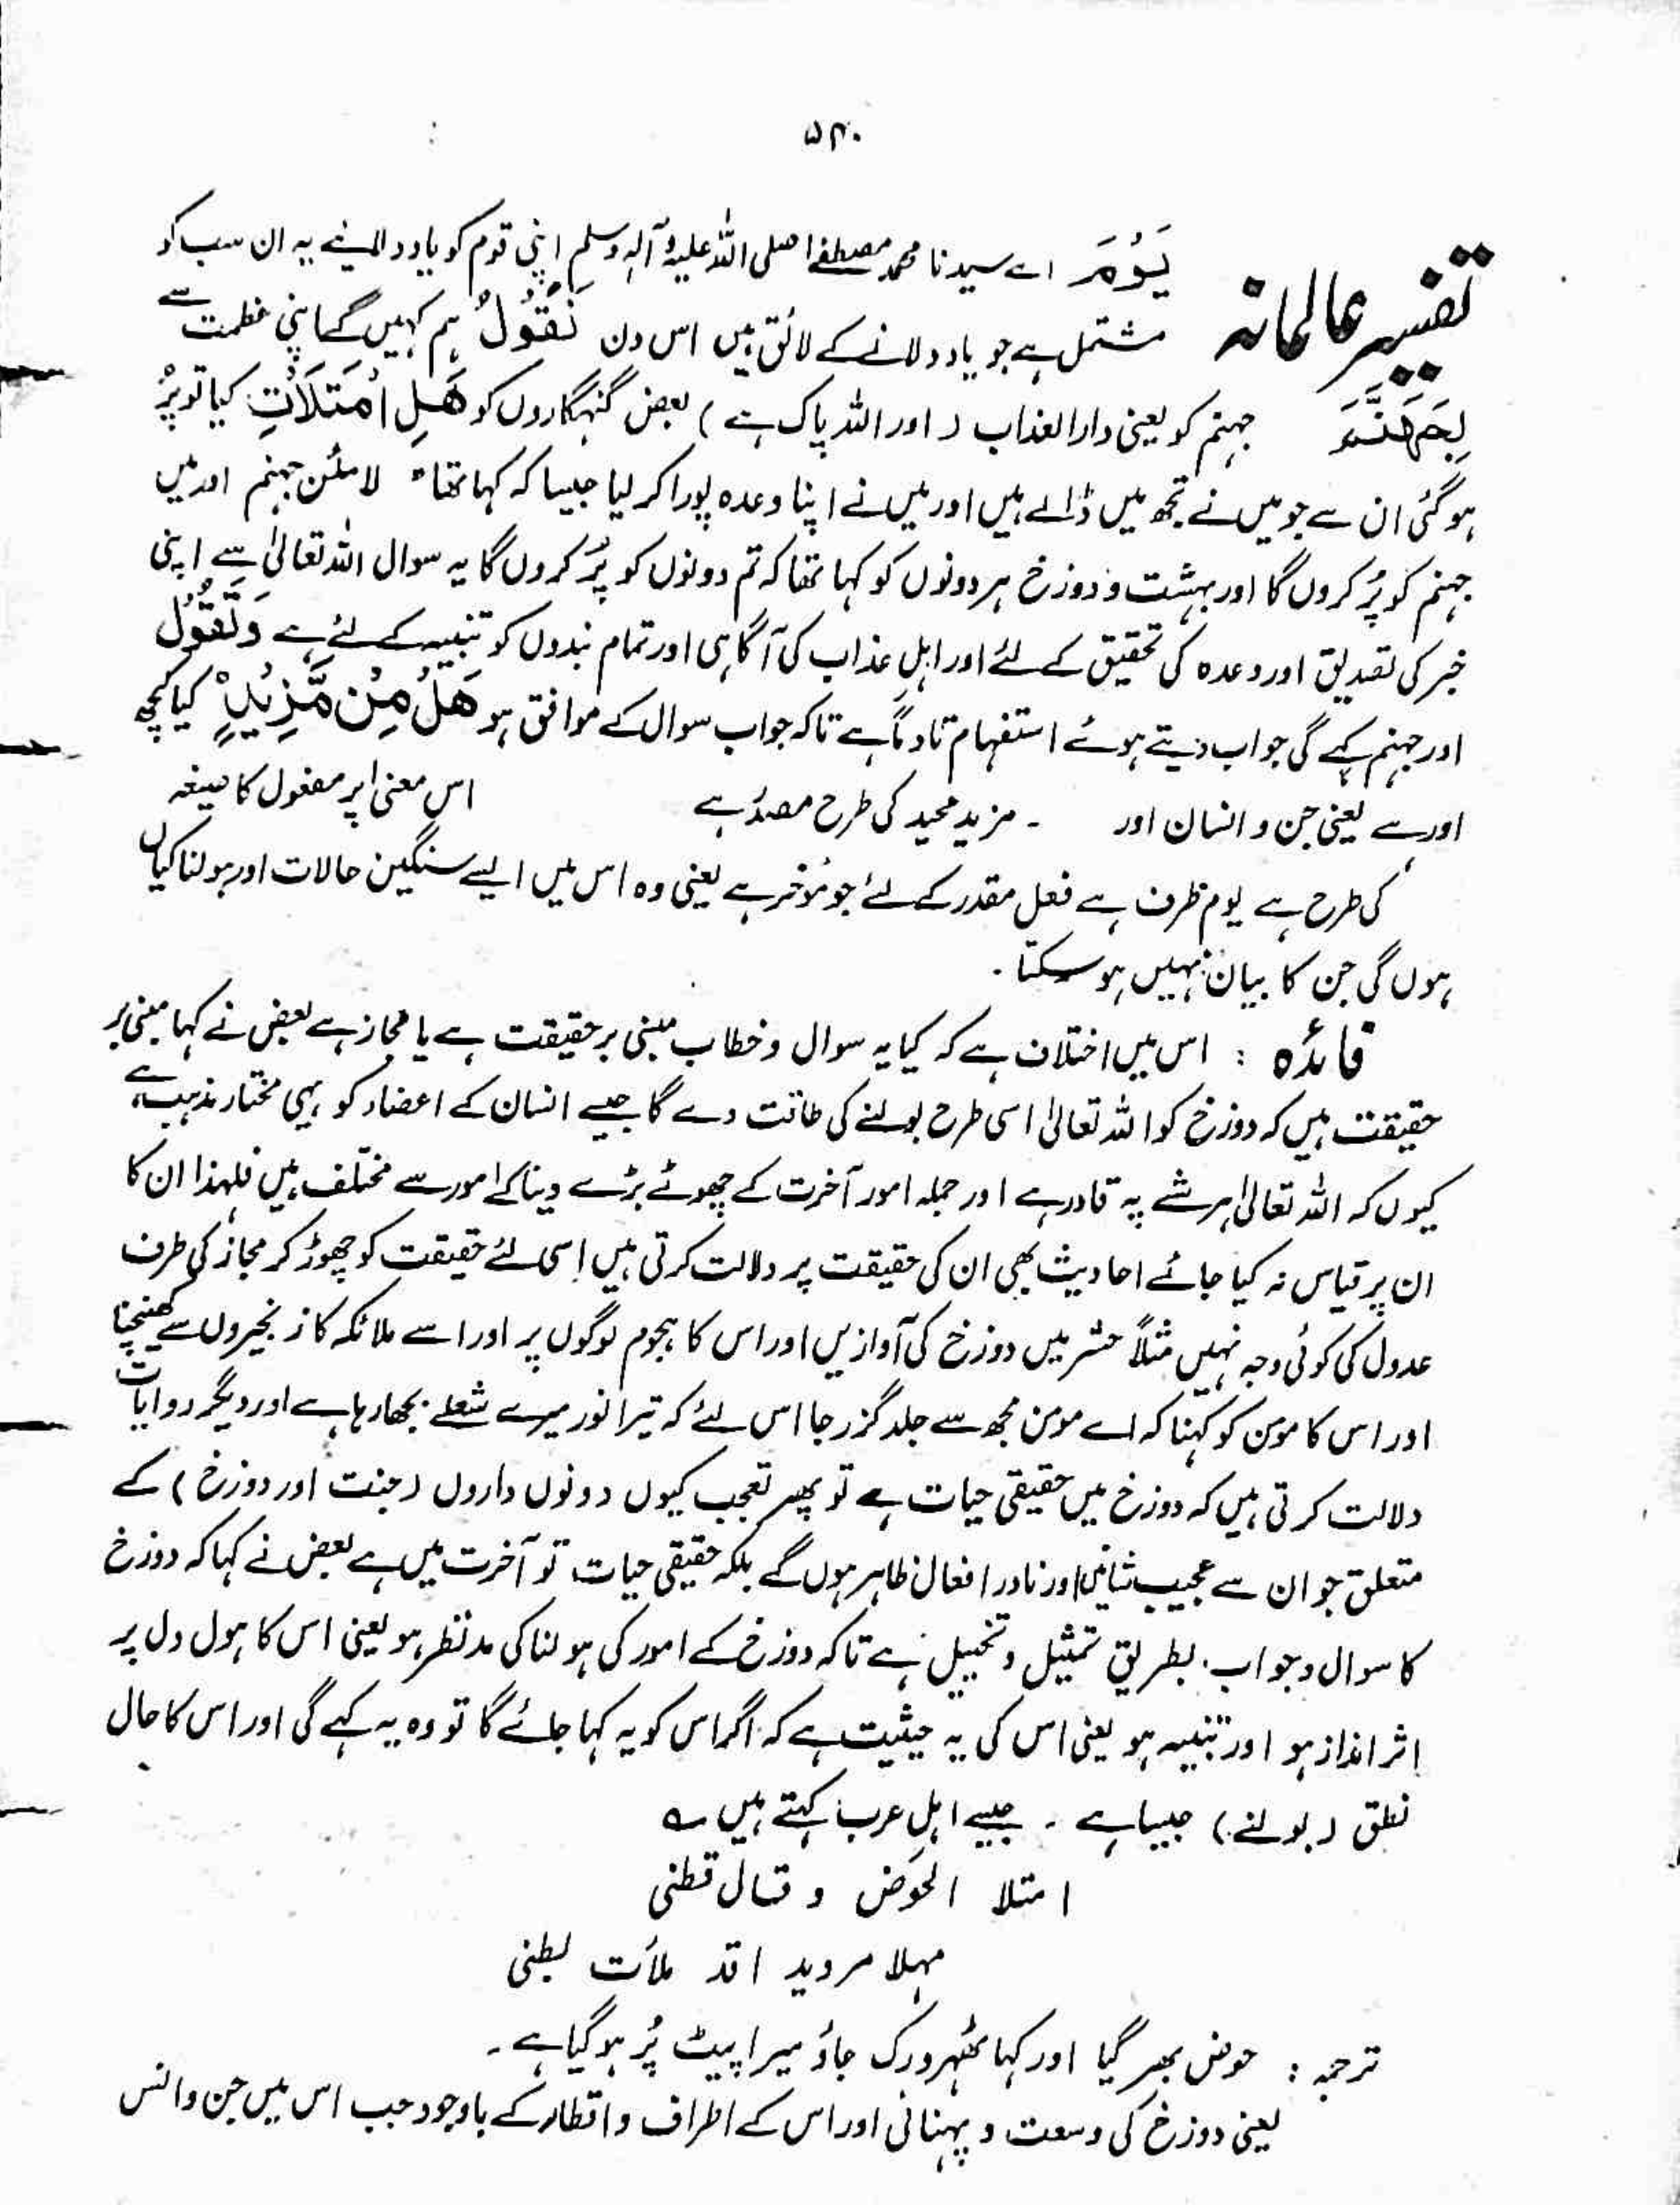 ۵۴۰
تفسیر عالمانہ
یَوْمَ اے سیدنا محمد مصطفےٰ صلی اللہ علیہ وآلہ وسلم اپنی قوم کو یاد دلائیے یہ ان سب کو
مشتمل ہے جو یاد دلانے کے لائق ہیں اس دن نَقُوْلُ ہم کہیں گے اپنی عظمت سے
لِجَهَنَّمَ جہنم کو یعنی دارالعذاب (اور اللہ پاک ہے) بعض گنہگاروں کو هَلِ امْتَلَاْتِ کیا تو پُر
ہوگئی ان سے جو میں نے تجھ میں ڈالے ہیں اور میں نے اپنا وعدہ پورا کر لیا جیسا کہ کہا تھا لاملئن جہنم اور میں
جہنم کو پُر کروں گا اور بہشت و دوزخ ہر دونوں کو کہا تھا کہ تم دونوں کو پُر کروں گا یہ سوال اللہ تعالیٰ سے اپنی
خبر کی تصدیق اور وعدہ کی تحقیق کے لئے اور اہلِ عذاب کی آگاہی اور تمام بندوں کو تنبیہ کے لئے ہے وَتَقُوْلُ
اور جہنم کہے گی جواب دیتے ہوئے استفہام تادباً ہے تاکہ جواب سوال کے موافق ہو هَلْ مِنْ مَّزِیْدٍ کیا کچھ
اور ہے یعنی جن و انسان اور ۔ مزید محید کی طرح مصدر ہے اس معنیٰ پر مفعول کا صیغہ
کی طرح ہے یوم ظرف ہے فعل مقدر کے لئے جو مُوخر ہے یعنی وہ اس میں ایسے سنگین حالات اور ہولناکیاں
ہوں گی جن کا بیان نہیں ہوسکتا ۔
فائدہ : اس میں اختلاف ہے کہ کیا یہ سوال و خطاب مبنی بر حقیقت ہے یا مجاز ہے بعض نے کہا مبنی بر
حقیقت ہیں کہ دوزخ کو اللہ تعالیٰ اسی طرح بولنے کی طاقت دے گا جیسے انسان کے اعضاء کو یہی مختار مذہب ہے
کیوں کہ اللہ تعالیٰ ہر شے پہ قادر ہے اور جملہ امور آخرت کے چھوٹے بڑے دینا کے امور سے مختلف ہیں فلہذا ان کا
ان پر قیاس نہ کیا جائے احادیث بھی ان کی حقیقت پر دلالت کرتی ہیں اِسی لئے حقیقت کو چھوڑ کر مجاز کی طرف
عدول کی کوئی وجہ نہیں مثلاً حشر میں دوزخ کی آوازیں اور اس کا ہجوم لوگوں پر اور اسے ملائکہ کا زنجیروں سے کھینچنا
اور اس کا مومن کو کہنا کہ اے مومن مجھ سے جلد گزر جا اس لئے کہ تیرا نور میرے شعلے بجھا رہا ہے اور دیگر روایات
دلالت کرتی ہیں کہ دوزخ میں حقیقی حیات ہے تو پھر تعجب کیوں دونوں داروں (جنت اور دوزخ) کے
متعلق جو ان سے عجیب شانیں اور نادر افعال ظاہر ہوں گے بلکہ حقیقی حیات تو آخرت میں ہے بعض نے کہا کہ دوزخ
کا سوال و جواب بطریق تمثیل و تخییل ہے تاکہ دوزخ کے امور کی ہولناکی مدنظر ہو یعنی اس کا ہول دل پر
اثر انداز ہو اور تنبیہ ہو یعنی اس کی یہ حیثیت ہے کہ اگر اس کو یہ کہا جائے گا تو وہ یہ کہے گی اور اس کا حال
نطق (بولنے) جیسا ہے ۔ جیسے اہلِ عرب کہتے ہیں ؎
امتلا الحوَض و قال قطنی
مہلا مروید اقد ملأت لبطنی
ترجمہ : حوض بھر گیا اور کہا ٹھہرو رک جاؤ میرا پیٹ پُر ہوگیا ہے ۔
یعنی دوزخ کی وسعت و پہنائی اور اس کے اطراف و اقطار کے باوجود جب اس میں جن وانس